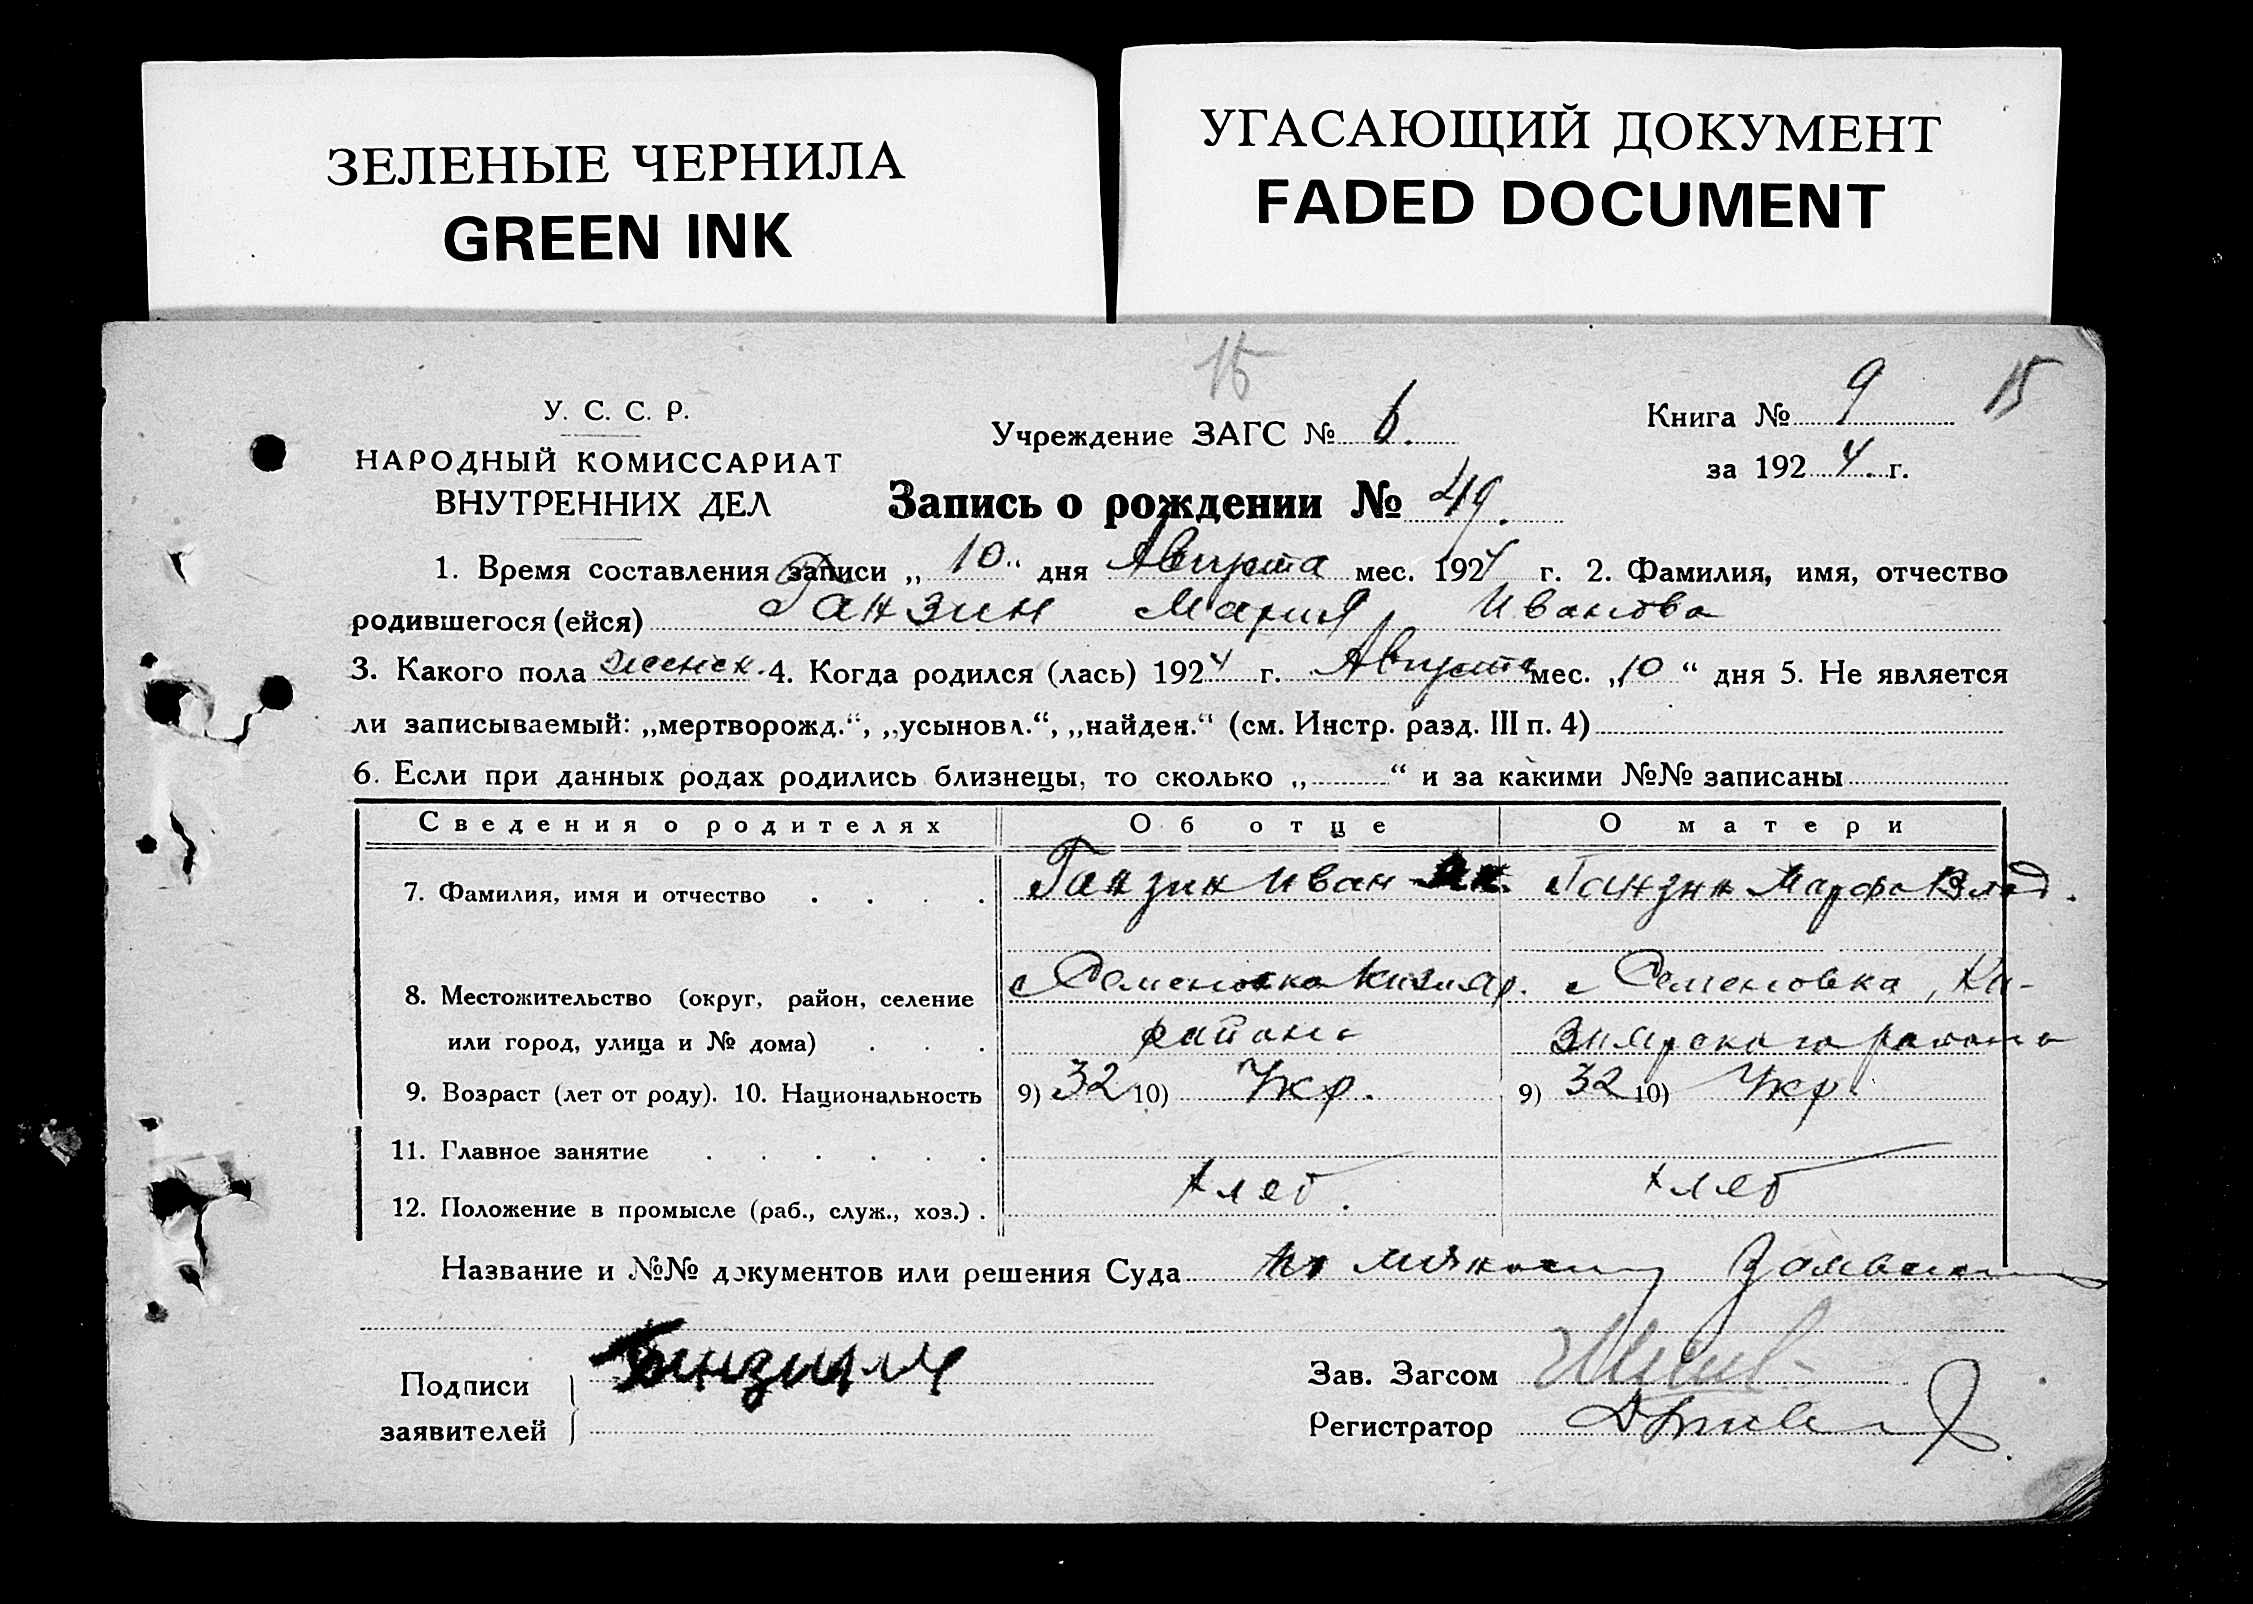 ЗЕЛЕНЫЕ ЧЕРНИЛА
GREEN INK
УГАСАЮЩИЙ ДОКУМЕНТ
FADED DOCUMENT
15
У. С. С. Р.
НАРОДНЫЙ КОМИССАРИАТ
ВНУТРЕННИХ ДЕЛ
Учреждение ЗАГС № 6.
Книга № 9
15
за 1924 г.
Запись о рождении № 49.
1. Время составления записи „10“ дня Августа мес. 1924 г. 2. Фамилия, имя, отчество
родившегося (ейся) Ганзин Мария Иванова
3. Какого пола женск. 4. Когда родился (лась) 1924 г. Августа мес. „10“ дня 5. Не является
ли записываемый: „мертворожд.“, „усыновл.“, „найден.“ (см. Инстр. разд. III п. 4)
6. Если при данных родах родились близнецы, то сколько „ “ и за какими №№ записаны
Сведения о родителях Об отце О матери
7. Фамилия, имя и отчество . . . . Ганзин Иван Ганзин Марфа Влад.
8. Местожительство (округ, район, селение с Семеновка Кизияр. с Семеновка, Ки-
или город, улица и № дома) . . . района зиярского района
9. Возраст (лет от роду). 10. Национальность 9) 32 10) Укр. 9) 32 10) Укр.
11. Главное занятие . . . . . .
12. Положение в промысле (раб., служ., хоз.) . хлеб. хлеб
Название и №№ документов или решения Суда по
Подписи
заявителей
Зав. Загсом
Регистратор